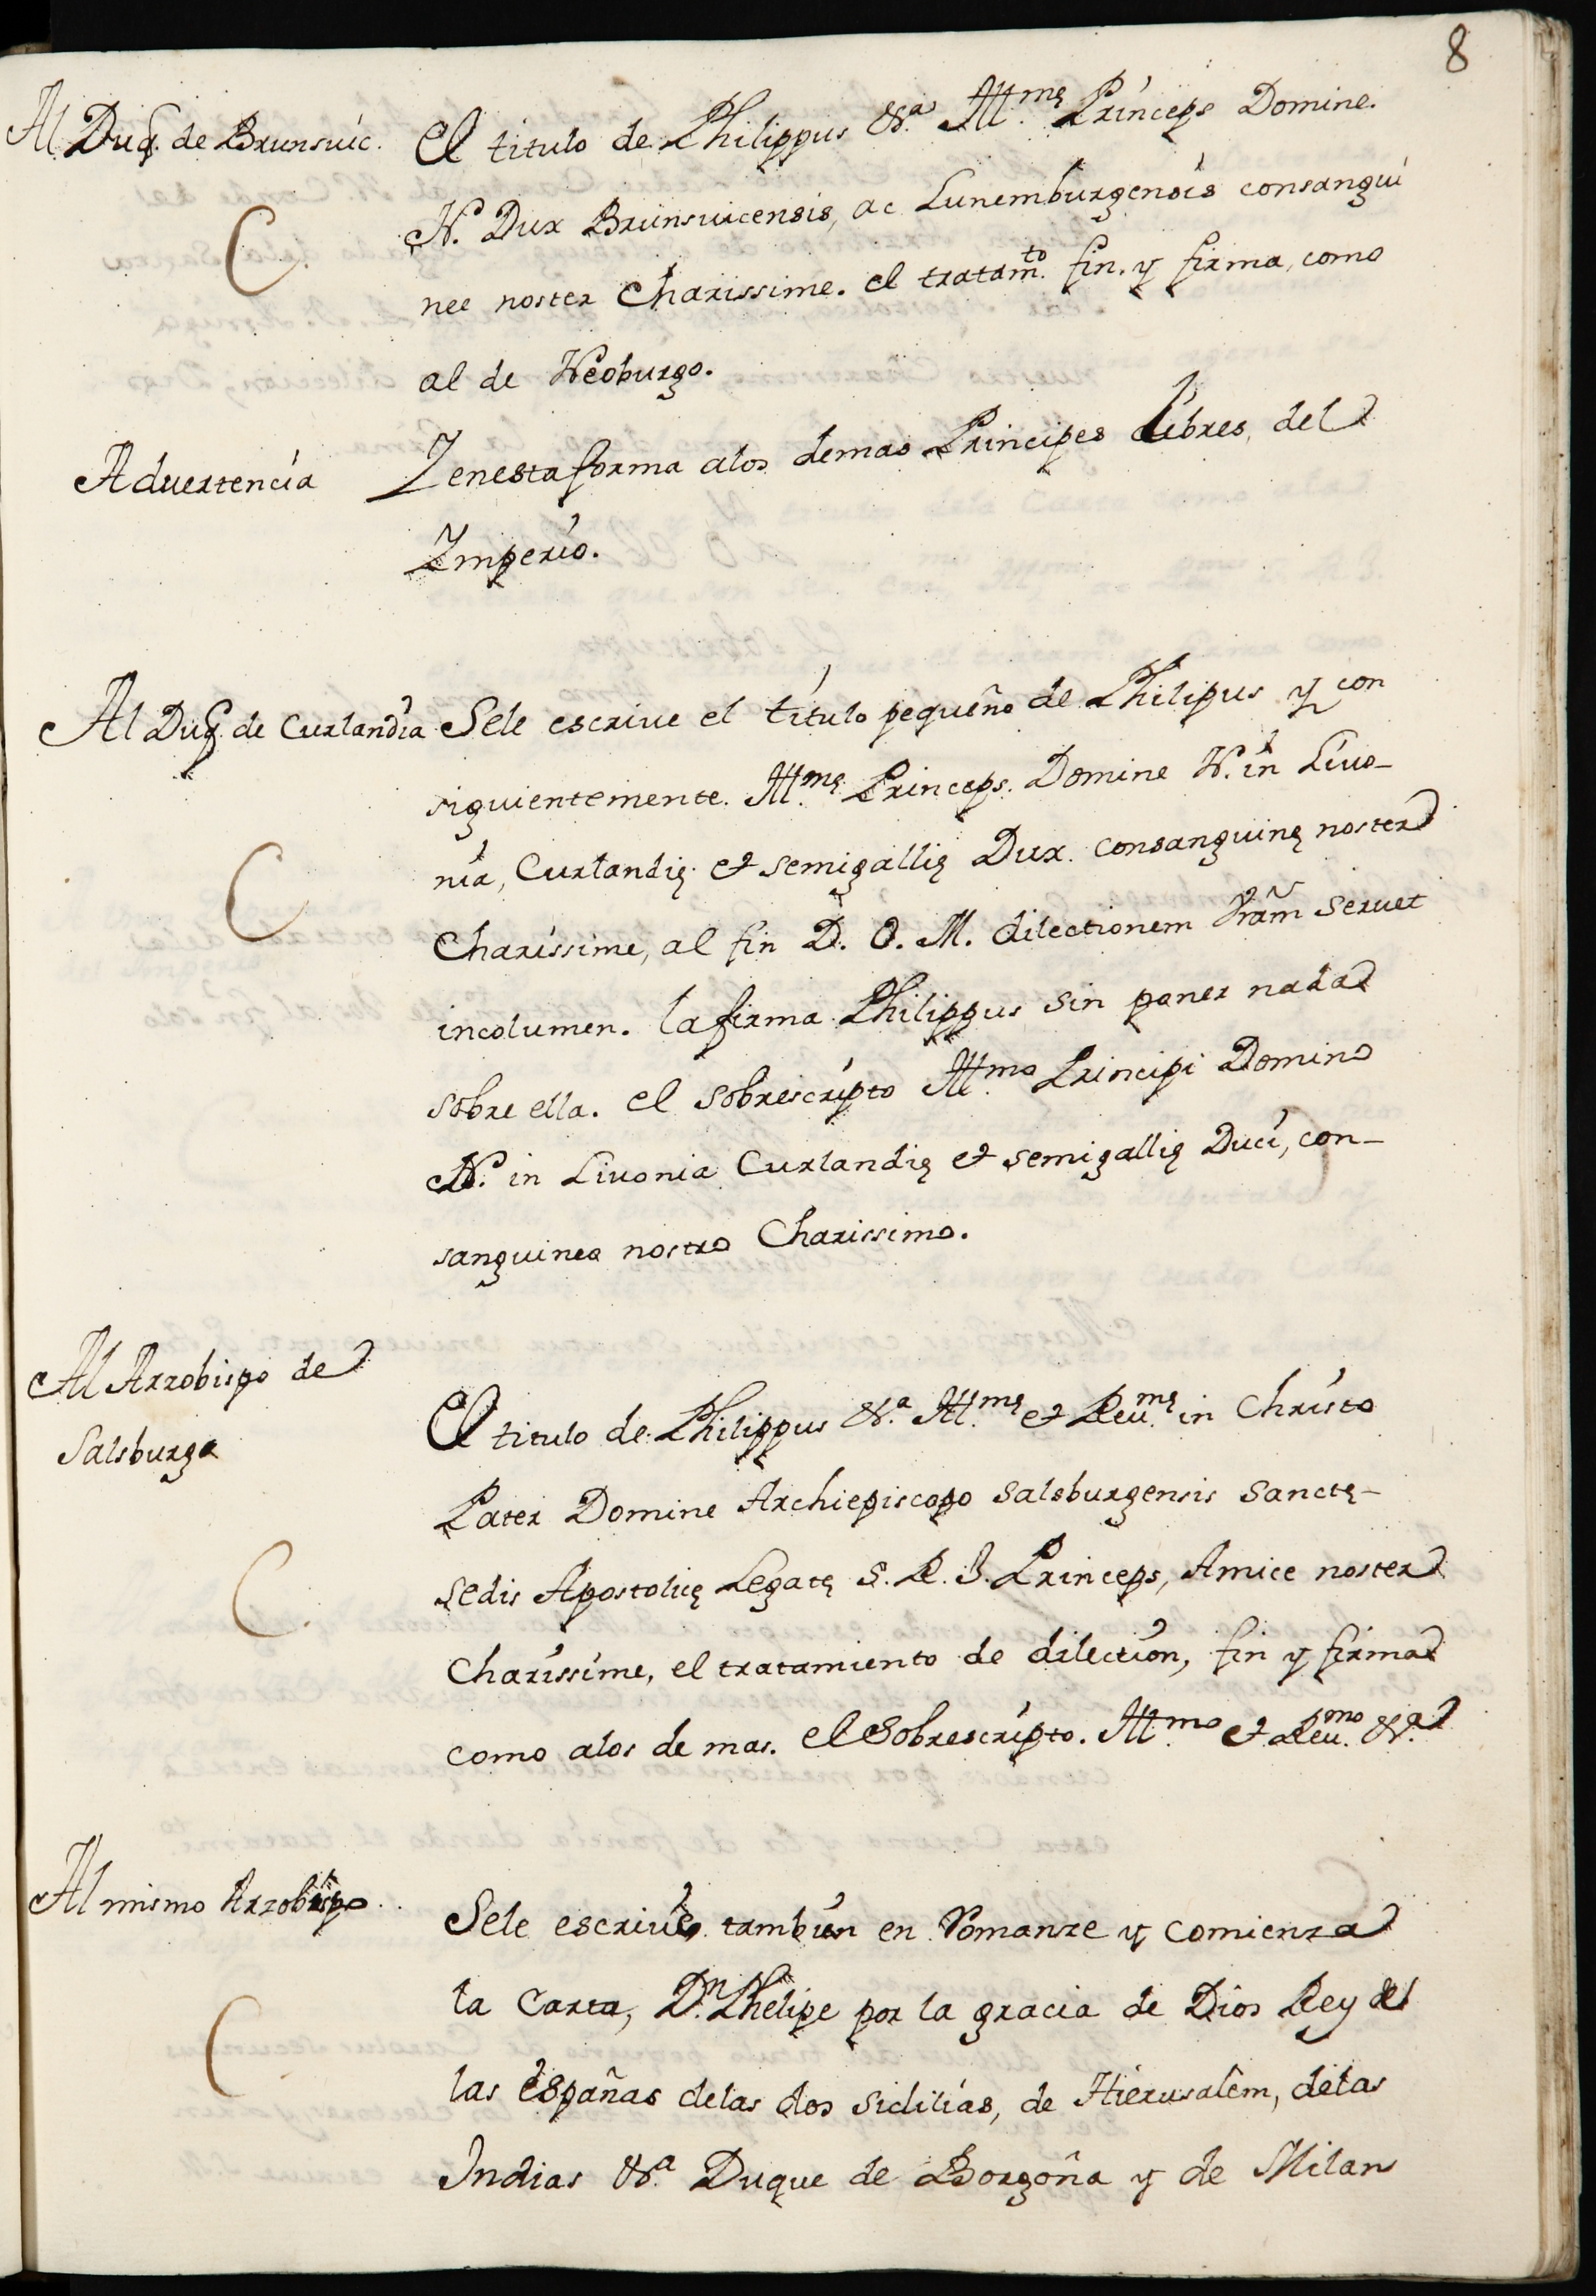 8
Al Duq. de Brunsuic.
El titulo de Philippus &.ª Ill.mę Princeps Domine.
N. Dux Brunsuicensis, ac Lunemburgensis consangui
nee noster Charissime. el tratam.to fin. y firma, como
al de Neoburgo.
Aduertencia
Y enesta forma alos demas Principes Libres del
Imperio.
Al Duq. de Curlandia
Sele escriue el titulo pequeño de Philipus y con
siguientemente. Ill.mę Princeps. Domine N. in Liuo-
nia, Curlandię et semigallię Dux. Consanguinę noster
Charissime, al fin D. O. M. dilectionem Vram seruet
incolumen. la firma Philippus sin poner nada
sobre ella. el sobrescripto Ill.mo Principi Domino
N. in Liuonia Curlandię et semigallię Duci, con-
sanguineo nostro Charissimo.
Al Arzobispo de
Salsburgo
El titulo de Philippus &.ª Ill.mę et Reu.mę in Christo
Pater Domine Archiepiscopo Salsburgensis Sanctę-
sedis Apostolicę Legatę S. R. I. Princeps, Amice noster
Charissime, el tratamiento de dilection, fin y firma
como alos de mas. el Sobrescripto. Ill.mo et Reu.mo &.ª
Al mismo Arzobispo.
Sele escriue tambien en Romanze y comienza
la Carta, D.n Phelipe por la gracia de Dios Rey de
las españas delas dos Sicilias, de Hierusalem, delas
Indias &.ª Duque de Borgoña y de Milan